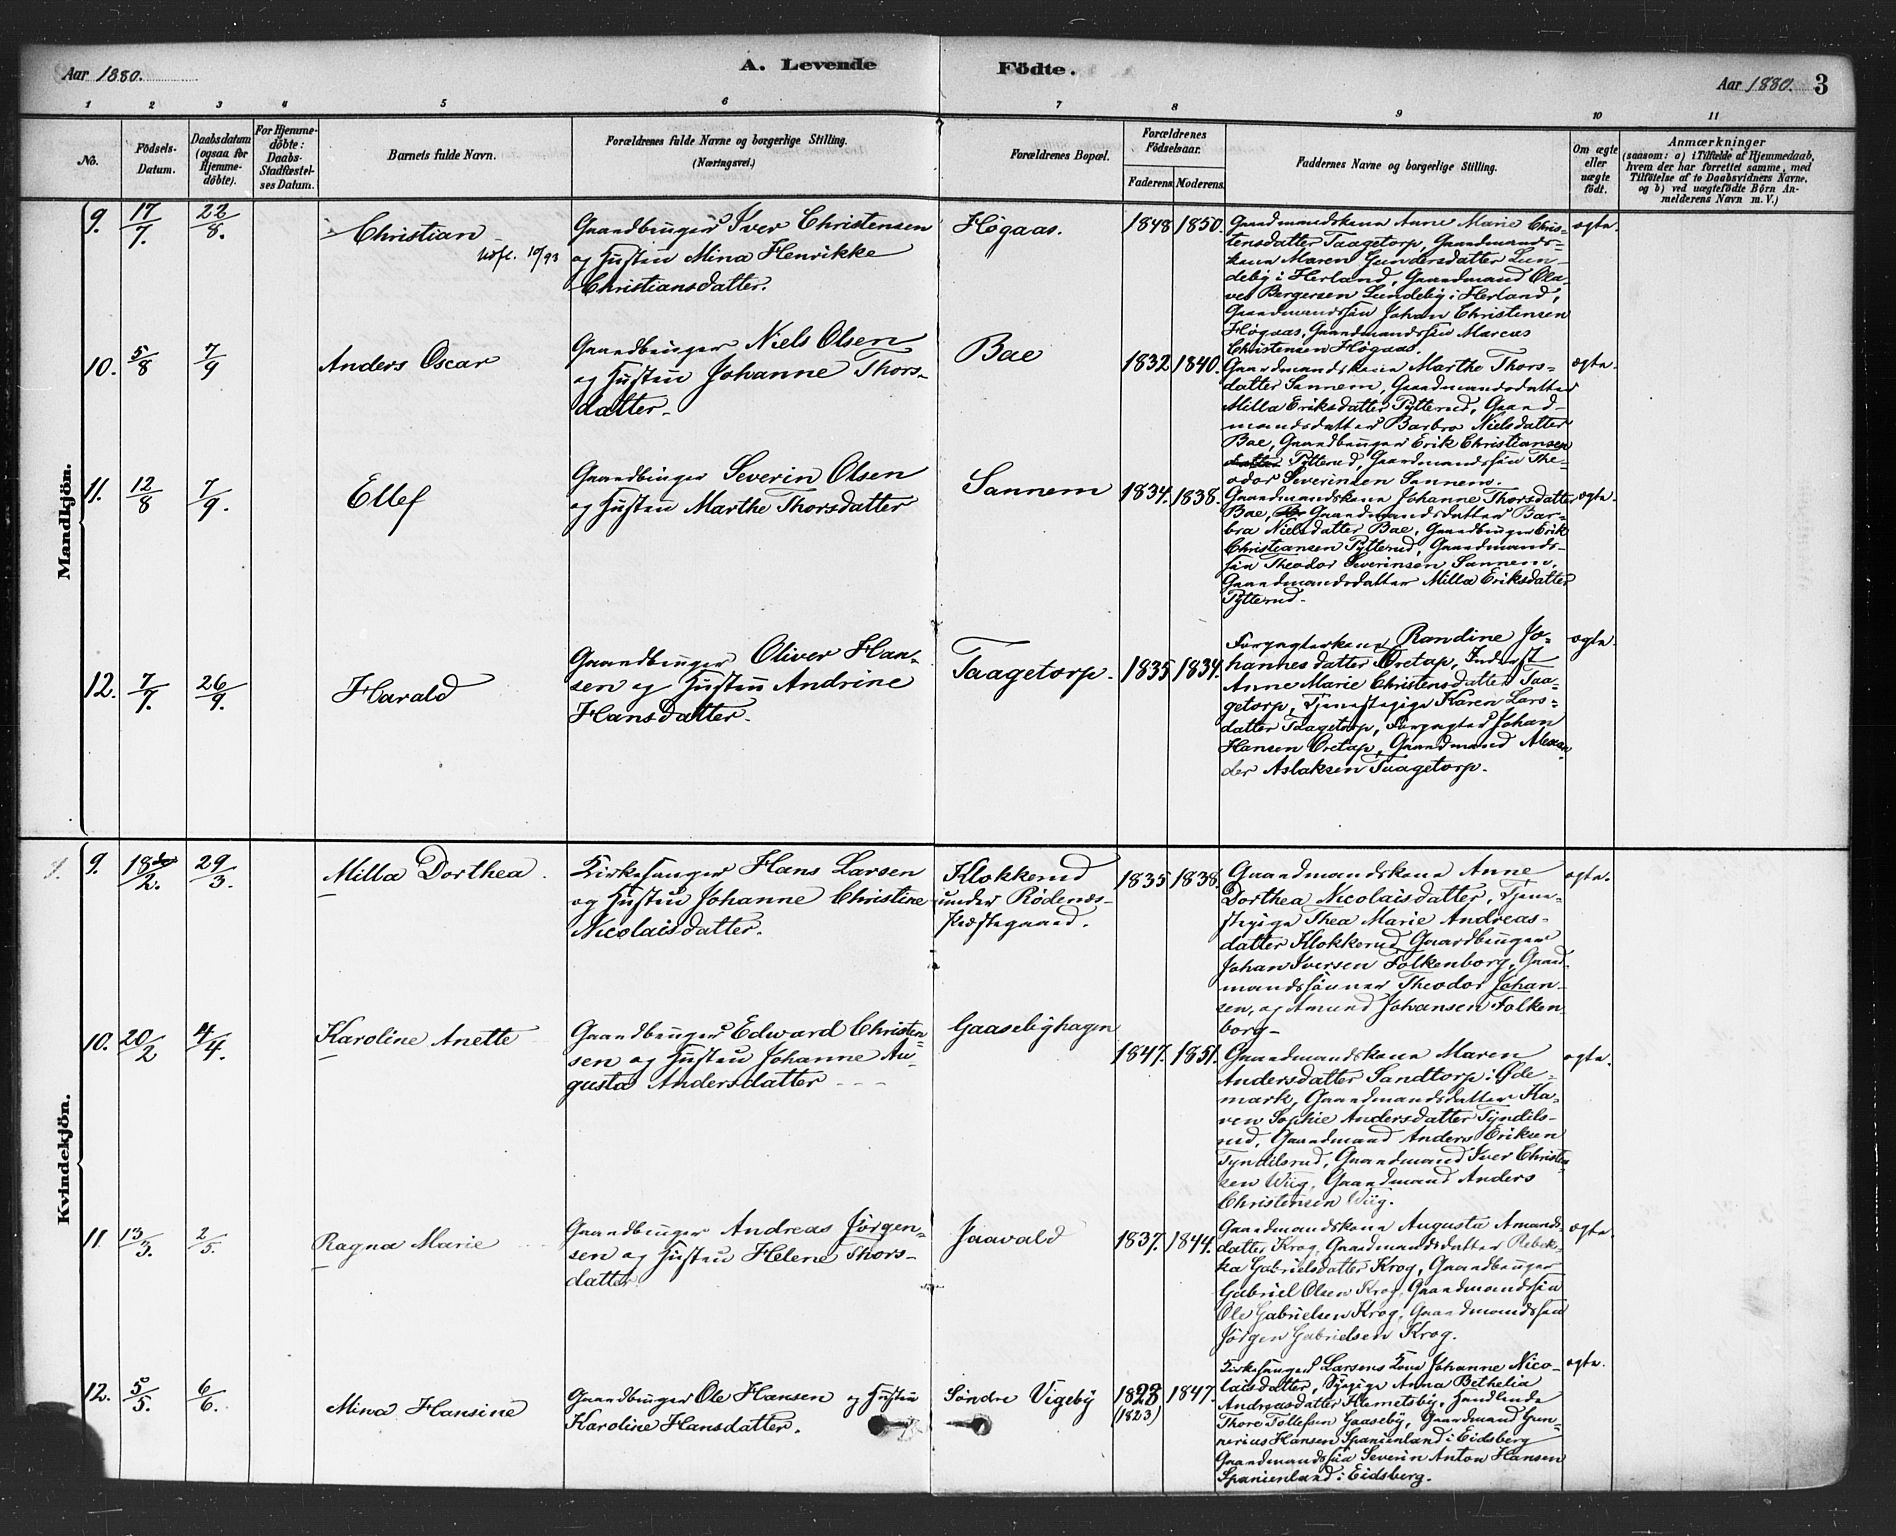 Aar 1880.
A. Levende Födte.
Aar 1880. 3
1 2 3 4 5 6 7 8 9 10 11
No.
Födsels-
Datum.
Daabsdatum
(ogsaa for
Hjemme-
döbte).
For Hjemme-
döbte:
Daabs-
Stadfæstel-
ses Datum.
Barnets fulde Navn.
Forældrenes fulde Navne og borgerlige Stilling.
(Næringsvei.)
Forældrenes Bopæl.
Forældrenes
Födselsaar.
Faderens Moderens
Faddernes Navne og borgerlige Stilling.
Om ægte
eller
uægte
födt.
Anmærkninger
(saasom: a) i Tilfælde af Hjemmedaab,
hvem der har forrettet samme, med
Tilföielse af to Daabsvidners Navne,
og b) ved uægtefödte Börn An-
melderens Navn m. V.)
Mandkjön.
9. 17/7. 22/8.
Christian
Udfl. 10/93
Gaardbruger Iver Christensen
og Hustru Mina Henrikke
Christiansdatter.
Høgaas.
1848 1850.
Gaardmandskone Anne Marie Chris-
tensdatter Taagetorp, Gaardmands-
kone Maren Gundersdatter Lun-
deby i Herland, Gaardmand Ola-
ves Bergersen Lundeby i Herland,
Gaardmandssøn Johan Christensen
Høgaas, Gaardmandssøn Marcus
Christensen Høgaas.
ægte.
10. 5/8 7/9
Anders Oscar
Gaardbruger Niels Olsen
og Hustru Johanne Thors-
datter.
Bae
1832 1840.
Gaardmandskone Marthe Thors-
datter Sannem, Gaardmandsdatter
Milla Eriksdatter Pytterud, Gaard-
mandsdatter Barbro Nielsdatter
Bae, Gaardbruger Erik Christiansen
Pytterud, Gaardmandssøn The-
odor Severinsen Sannem.
ægte.
11. 12/8 7/9.
Ellef
Gaardbruger Severin Olsen
og Hustru Marthe Thorsdatter
Sannem
1834. 1838.
Gaardmandskone Johanne Thorsdatter
Bae, Gaardmandsdatter Bar-
bra Nielsdatter Bae, Gaardbruger Erik
Christiansen Pytterud, Gaardmands-
søn Theodor Severinsen Sannem,
Gaardmandsdatter Milla Eriksdatter
Pytterud.
ægte.
12. 7/7. 26/9.
Harald
Gaardbruger Oliver Han-
sen og Hustru Andrine
Hansdatter.
Taagetorp.
1835 1834.
Forpagterkone Randine Jo-
hannesdatter Oretap, Inderst
Anne Marie Christensdatter Taa-
getorp, Tjenestepige Karen Lars-
datter Taagetorp, Forpagter Johan
Hansen Oretap, Gaardmand Alexan-
der Aslaksen Taagetorp.
ægte.
Kvindekjön.
9. 18/2. 29/3.
Milla Dorthea.
Kirkesanger Hans Larsen
og Hustru Johanne Christine
Nicolaisdatter.
Klokkerud
under Rødenæs-
Præstegaard.
1835 1838.
Gaardmandskone Anne
Dorthea Nicolaisdatter, Tjene-
stepige Thea Marie Andreas-
datter Klokkerud, Gaardbruger
Johan Iversen Folkenborg, Gaard-
mandssønner Theodor Johan-
sen, og Amund Johansen Folken
borg-
ægte.
10. 20/2 4/4.
Karoline Anette
Gaardbruger Edward Christen-
sen og Hustru Johanne Au-
gusta Andersdatter
Gaasebyhagen
1847. 1851.
Gaardmandskone Maren
Andersdatter Sandtorp i Øde-
mark, Gaardmandsdatter Ka-
ren Sophie Andersdatter Tyndils-
rud, Gaardmand Anders Eriksen
Tyndilsrud, Gaardmand Iver Christen-
sen Wiig, Gaardmand Anders
Christensen Wiig.
ægte.
11 13/3. 2/5.
Ragna Marie
Gaardbruger Andreas Jørgen-
sen og Hustru Helene Thors-
datter
Jaavald
1837. 1844.
Gaardmandskone Augusta Amunds-
datter Krog, Gaardmandsdatter Rebek-
ka Gabrielsdatter Krog, Gaardbruger
Gabriel Olsen Krog, Gaardmandssøn
Ole Gabrielsen Krog, Gaardmandssøn
Jørgen Gabrielsen Krog.
ægte.
12. 5/5. 6/6.
Mina Hansine
Gaardbruger Ole Hansen og Hustru
Karoline Hansdatter.
Søndre Vigeby
1823 1847.
(1823)
Kirkesanger Larsens Kone Johanne Nico-
laisdatter, Sypige Anna Bethelia
Andreasdatter Klemetsby, Handlende
Thore Tollefsen Gaaseby, Gaardmand Gun-
nerius Hansen Spanienland i Eidsberg
Gaardmandssøn Severin Anton Hansen
Spanienland i Eidsberg.
ægte.